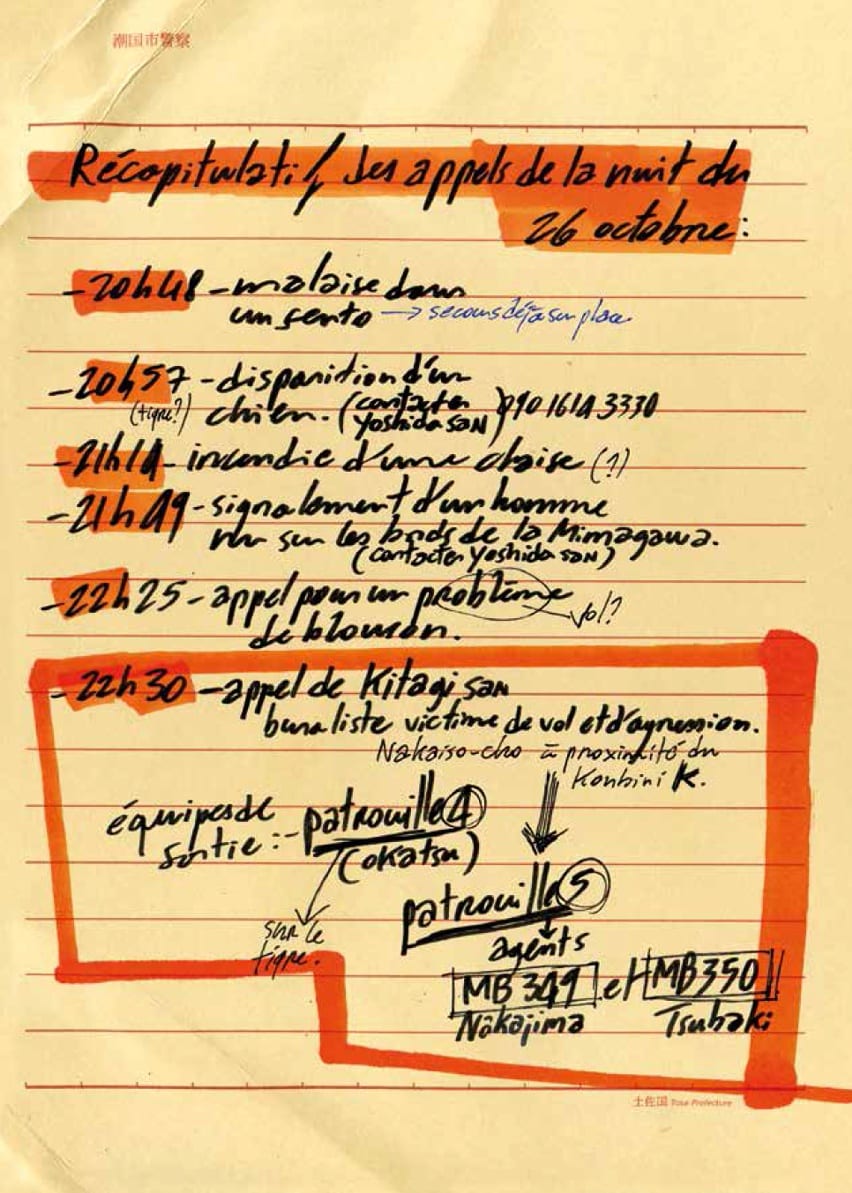 潮国市警察
Récapitulatif des appels de la nuit du
26 octobre :
- 20h48 - malaise dans
un sento → secours déjà sur place
- 20h57 - disparition d'un
(tigre?) chien. (contacter Yoshida san) 090 1614 3330
- 21h14 - incendie d'une chaise (?)
- 21h49 - signalement d'un homme
nu sur les bords de la Mimagawa.
(contacter Yoshida san)
- 22h25 - appel pour un problème
de blouson. Vol?
- 22h30 - appel de Kitagi san
buraliste victime de vol et d'agression.
Nakaiso-cho à proximité du
Konbini K.
équipes de
sortie : - patrouille 4
(Okatsu)
patrouille 5
sur le
tigre.
agents
MB 349 et MB 350
Nakajima Tsubaki
土佐国 Tosa Prefecture